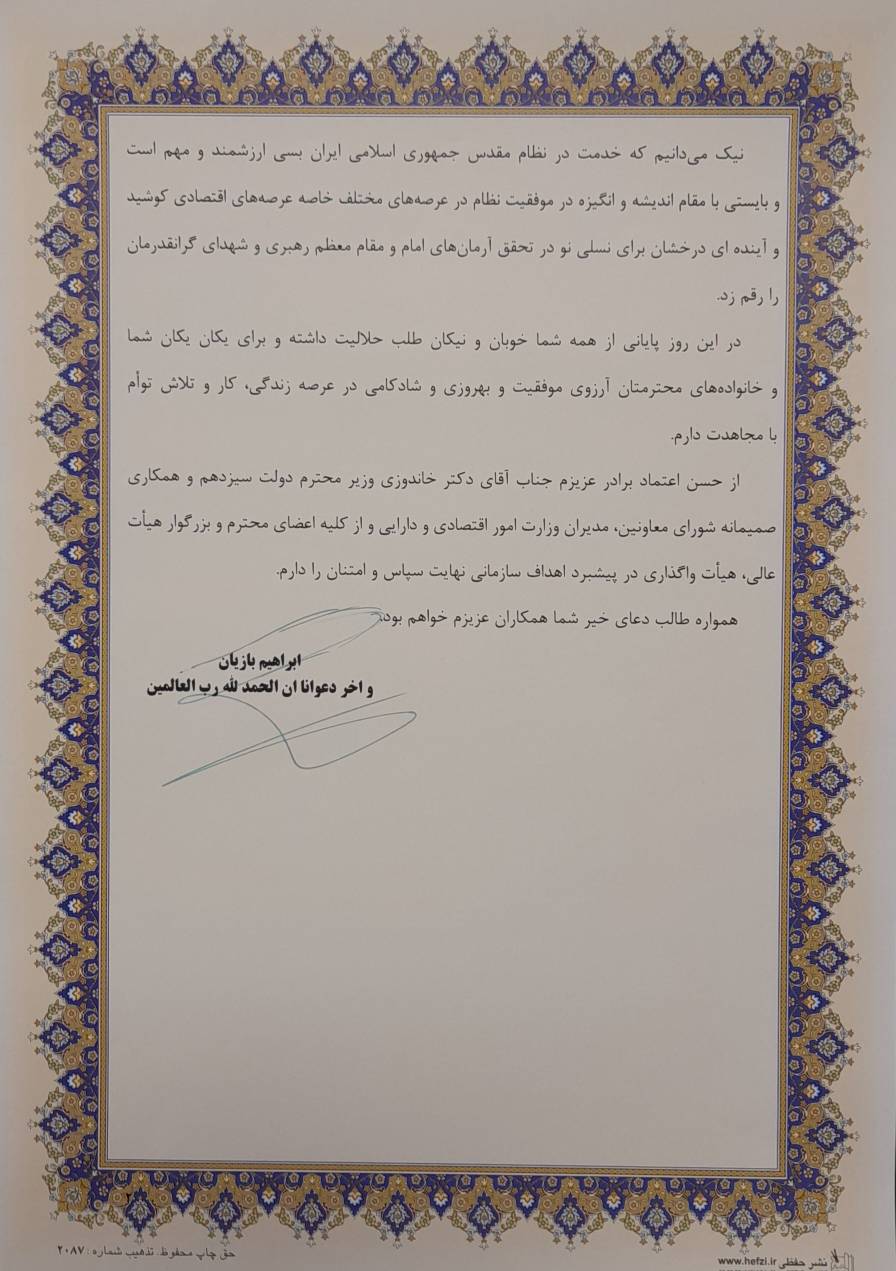 نیک می‌دانیم که خدمت در نظام مقدس جمهوری اسلامی ایران بسی ارزشمند و مهم است
و بایستی با مقام اندیشه و انگیزه در موفقیت نظام در عرصه‌های مختلف خاصه عرصه‌های اقتصادی کوشید
و آینده ای درخشان برای نسلی نو در تحقق آرمان‌های امام و مقام معظم رهبری و شهدای گرانقدرمان
را رقم زد.
در این روز پایانی از همه شما خوبان و نیکان طلب حلالیت داشته و برای یکان یکان شما
و خانواده‌های محترمتان آرزوی موفقیت و بهروزی و شادکامی در عرصه زندگی، کار و تلاش توأم
با مجاهدت دارم.
از حسن اعتماد برادر عزیزم جناب آقای دکتر خاندوزی وزیر محترم دولت سیزدهم و همکاری
صمیمانه شورای معاونین، مدیران وزارت امور اقتصادی و دارایی و از کلیه اعضای محترم و بزرگوار هیأت
عالی، هیأت واگذاری در پیشبرد اهداف سازمانی نهایت سپاس و امتنان را دارم.
همواره طالب دعای خیر شما همکاران عزیزم خواهم بود.
ابراهیم بازیان
و اخر دعوانا ان الحمد لله رب العالمین
نشر حفظی www.hefzi.ir
حق چاپ محفوظ. تذهیب شماره: ۲۰۸۷